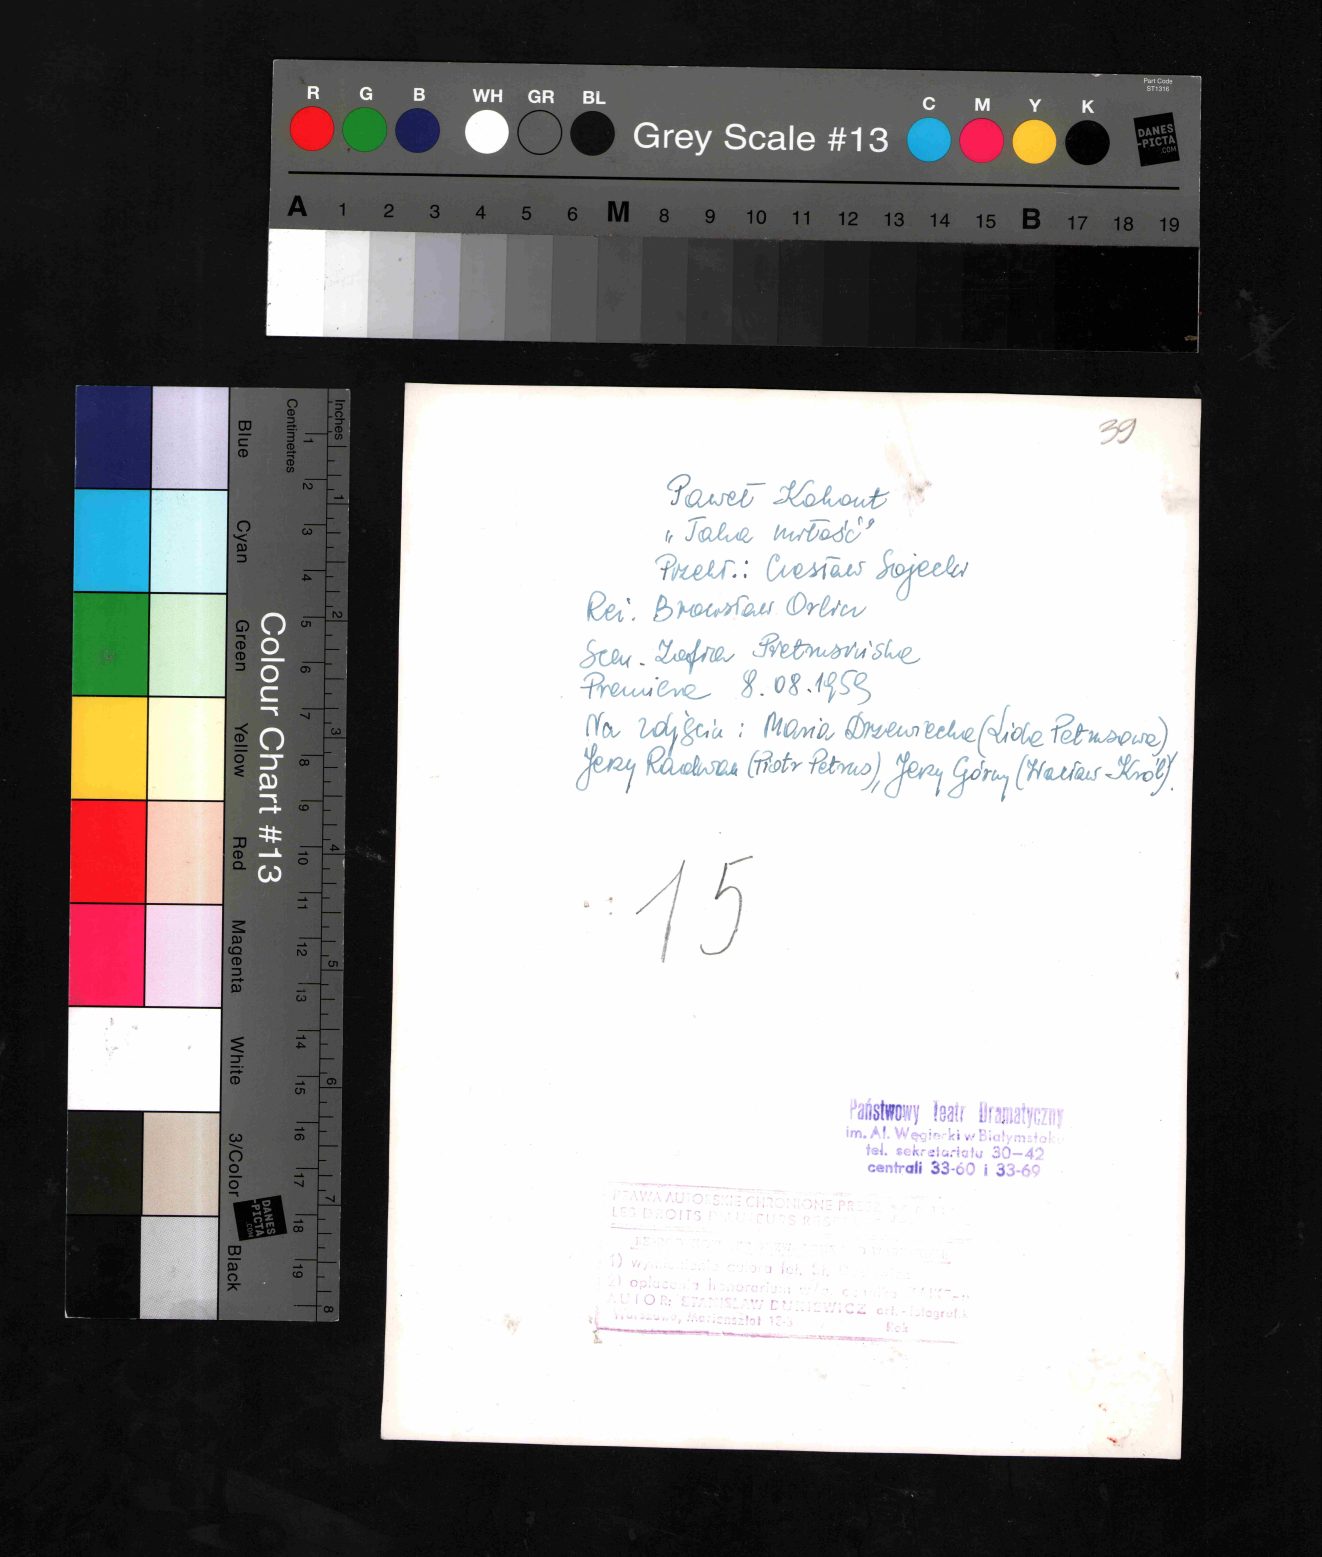 Part Code
ST1316
R G B WH GR BL Grey Scale #13 C M Y K
DANES
-PICTA
.COM
A 1 2 3 4 5 6 M 8 9 10 11 12 13 14 15 B 17 18 19
Colour Chart #13
Blue
Cyan
Green
Yellow
Red
Magenta
White
3/Color
Black
Centimetres
1 2 3 4 5 6 7 8 9 10 11 12 13 14 15 16 17 18 19
Inches
1 2 3 4 5 6 7 8
DANES
-PICTA
.COM
39
Paweł Kohout
„Taka miłość”
Przekł.: Czesław Sojecki
Reż. Bronisław Orlicz
Scen. Zofia Pietrusińska
Premiera 8.08.1959
Na zdjęciu: Maria Drzewiecka (Lida Petrusowa)
Jerzy Radwan (Piotr Petrus), Jerzy Górny (Wacław Król).
15
Państwowy Teatr Dramatyczny
im. Al. Węgierki w Białymstoku
tel. sekretariatu 30-42
centrali 33-60 i 33-69
PRAWA AUTORSKIE CHRONIONE
LES DROITS
1)
2) opłacenia honorarium
AUTOR: STANISŁAW art.-fotografik
Warszawa, Mariensztat
Rok